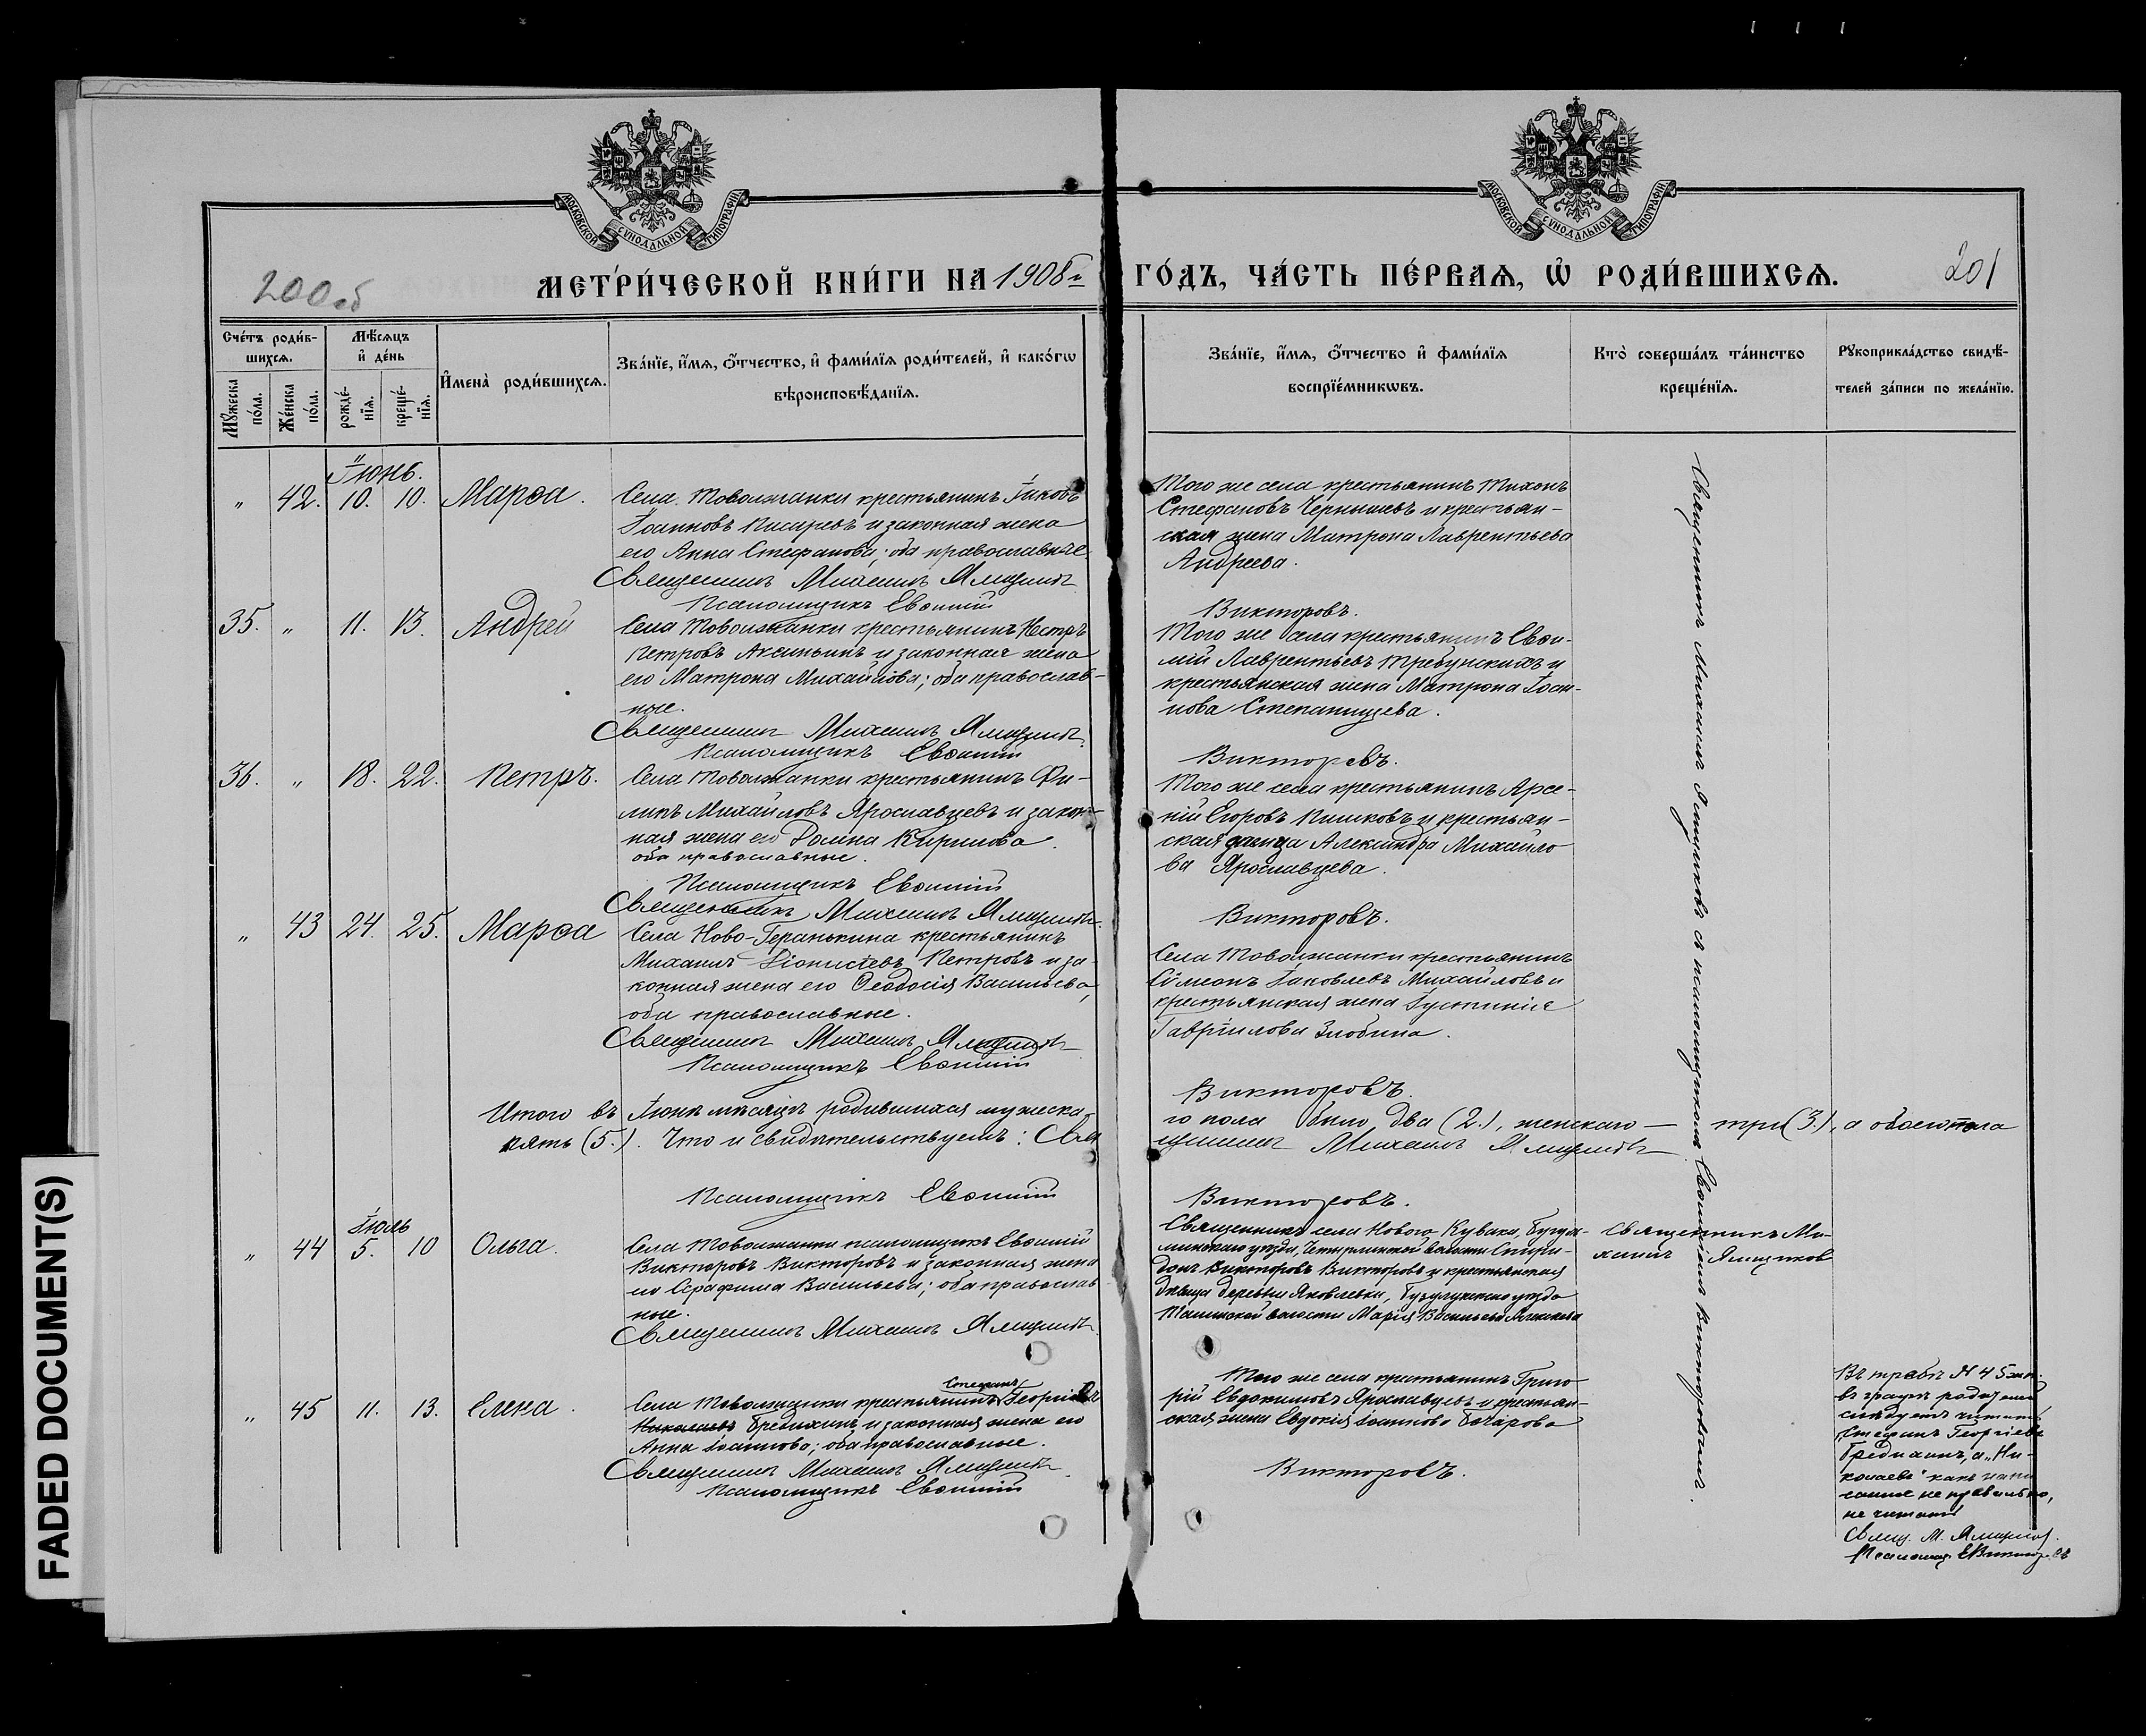 МОСКОВСКОЙ СѴНОДАЛЬНОЙ ТИПОГРАФІИ
МОСКОВСКОЙ СѴНОДАЛЬНОЙ ТИПОГРАФІИ
200об
МЕТРИ́ЧЕСКОЙ КНИ́ГИ НА 1908 г. ГО́ДЪ, ЧА́СТЬ ПЕ́РВАѦ, Ѽ РОДИ́ВШИХСѦ.
201
Сче́тъ роди́в-
шихсѧ.
Мѣ́сѧцъ
и҆ де́нь
Мꙋ́жеска по́ла.
Же́нска по́ла.
рожде́-нїѧ.
креще́-нїѧ.
И҆мена̀ роди́вшихсѧ.
Зва́нїе, и҆́мѧ, ѻ҆́тчество, и҆ фами́лїѧ роди́телей, и҆ како́гѡ
вѣроисповѣ́данїѧ.
Зва́нїе, и҆́мѧ, ѻ҆́тчество и҆ фами́лїѧ
воспрїе́мникѡвъ.
Кто̀ соверша́лъ та́инство
креще́нїѧ.
Рꙋкоприкла́дство свидѣ́-
телей за́писи по жела́нїю.
Іюнь.
" 42. 10. 10. Марѳа.
Села Товолжанки крестьянинъ Іаковъ
Іоанновъ Писаревъ и законная жена
его Анна Стефанова; оба православные
Священникъ Михаилъ Ямщиковъ
Псаломщикъ Евѳимій
Того же села крестьянинъ Тихонъ
Стефановъ Чернышевъ и крестьян-
ская жена Матрона Лаврентьева
Андреева.
Викторовъ.
35. " 11. 13. Андрей
Села Товолжанки крестьянинъ Петръ
Петровъ Аксиньинъ и законная жена
его Матрона Михайлова; оба православ-
ные.
Священникъ Михаилъ Ямщиковъ
Псаломщикъ Евѳимій
Того же села крестьянинъ Евѳи-
мій Лаврентьевъ Требунскихъ и
крестьянская жена Матрона Іоан-
нова Степанищева.
Викторовъ.
36. " 18. 22. Петръ.
Села Товолжанки крестьянинъ Фи-
липъ Михайловъ Ярославцевъ и закон-
ная жена его Домна Кирилова.
оба православные.
Псаломщикъ Евѳимій
Священникъ Михаилъ Ямщиковъ
Того же села крестьянинъ Арсе-
ній Егоровъ Пишковъ и крестьян-
ская дѣвица Александра Михайло
ва Ярославцева.
Викторовъ.
" 43 24. 25. Марѳа
Села Ново-Геранькина крестьянинъ
Михаилъ Діонисіевъ Петровъ и за-
конная жена его Ѳеодосія Васильева,
оба православные.
Священникъ Михаилъ Ямщиковъ
Псаломщикъ Евѳимій
Села Товолжанки крестьянинъ
Сѵмеонъ Іаковлевъ Михайловъ и
крестьянская жена Іустинія
Гавріилова Злобина.
Викторовъ.
Священникъ Михаилъ Ямщиковъ съ псаломщикомъ Евѳиміемъ Викторовымъ.
Итого въ Іюнѣ мѣсяцѣ родившихся мужеска-
го пола было два (2.), женскаго — три (3.), а обоего пола
пять (5.). Что и свидѣтельствуемъ: Свя
щенникъ Михаилъ Ямщиковъ
Псаломщикъ Евѳимій
Викторовъ.
Іюль
" 44 5. 10 Ольга.
Села Товолжанки псаломщикъ Евѳимій
Викторовъ Викторовъ и законная жена
его Серафима Васильева; оба православ
ные.
Священникъ Михаилъ Ямщиковъ
Священникъ села Новаго Кувака, Бугуль-
минскаго уѣзда, волости Спири-
донъ Викторовъ Викторовъ и крестьянская
дѣвица деревни Яковлевки, Бугурусланскаго уѣзда
волости Марія Васильева
Священникъ Ми-
хаилъ Ямщиковъ
" 45 11. 13. Елена.
Стефанъ
Села Товолжанки крестьянинъ Георгіевъ
Николаевъ Бредихинъ и законная жена его
Анна Іоаннова; оба православные.
Священникъ Михаилъ Ямщиковъ
Псаломщикъ Евѳимій
Того же села крестьянинъ Григо
рій Евдокимовъ Ярославцевъ и крестьян-
ская жена Евдокія Іоаннова Бочарова
Викторовъ.
Въ графѣ № 45
въ графѣ родителей
слѣдуетъ читать
Стефанъ Георгіевъ
Бредихинъ, а „Ни-
колаевъ" какъ напи
санное не правильно,
не читать
Свящ. М. Ямщиковъ.
Псаломщ. Е Викторовъ
FADED DOCUMENT(S)